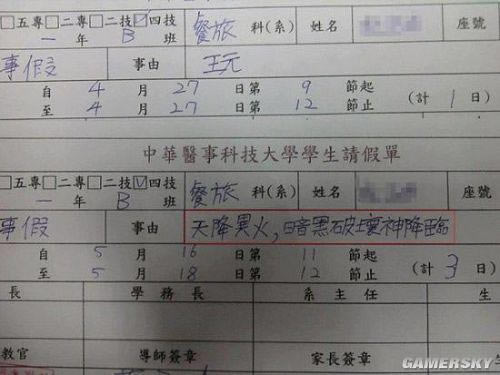 □五專□二專□二技☑四技 餐旅 科(系) 姓名 座號
一 年 B 班
事假 事由 王元
自 4 月 27 日第 9 節起 (計 1 日)
至 4 月 27 日第 12 節止
中華醫事科技大學學生請假單
□五專□二專□二技☑四技 餐旅 科(系) 姓名 座號
一 年 B 班
事假 事由 天降異火,暗黑破壞神降臨
自 5 月 16 日第 11 節起 (計 3 日)
至 5 月 18 日第 12 節止
長 學務長 系主任 生
教官 導師簽章 家長簽章
GAMERSKY